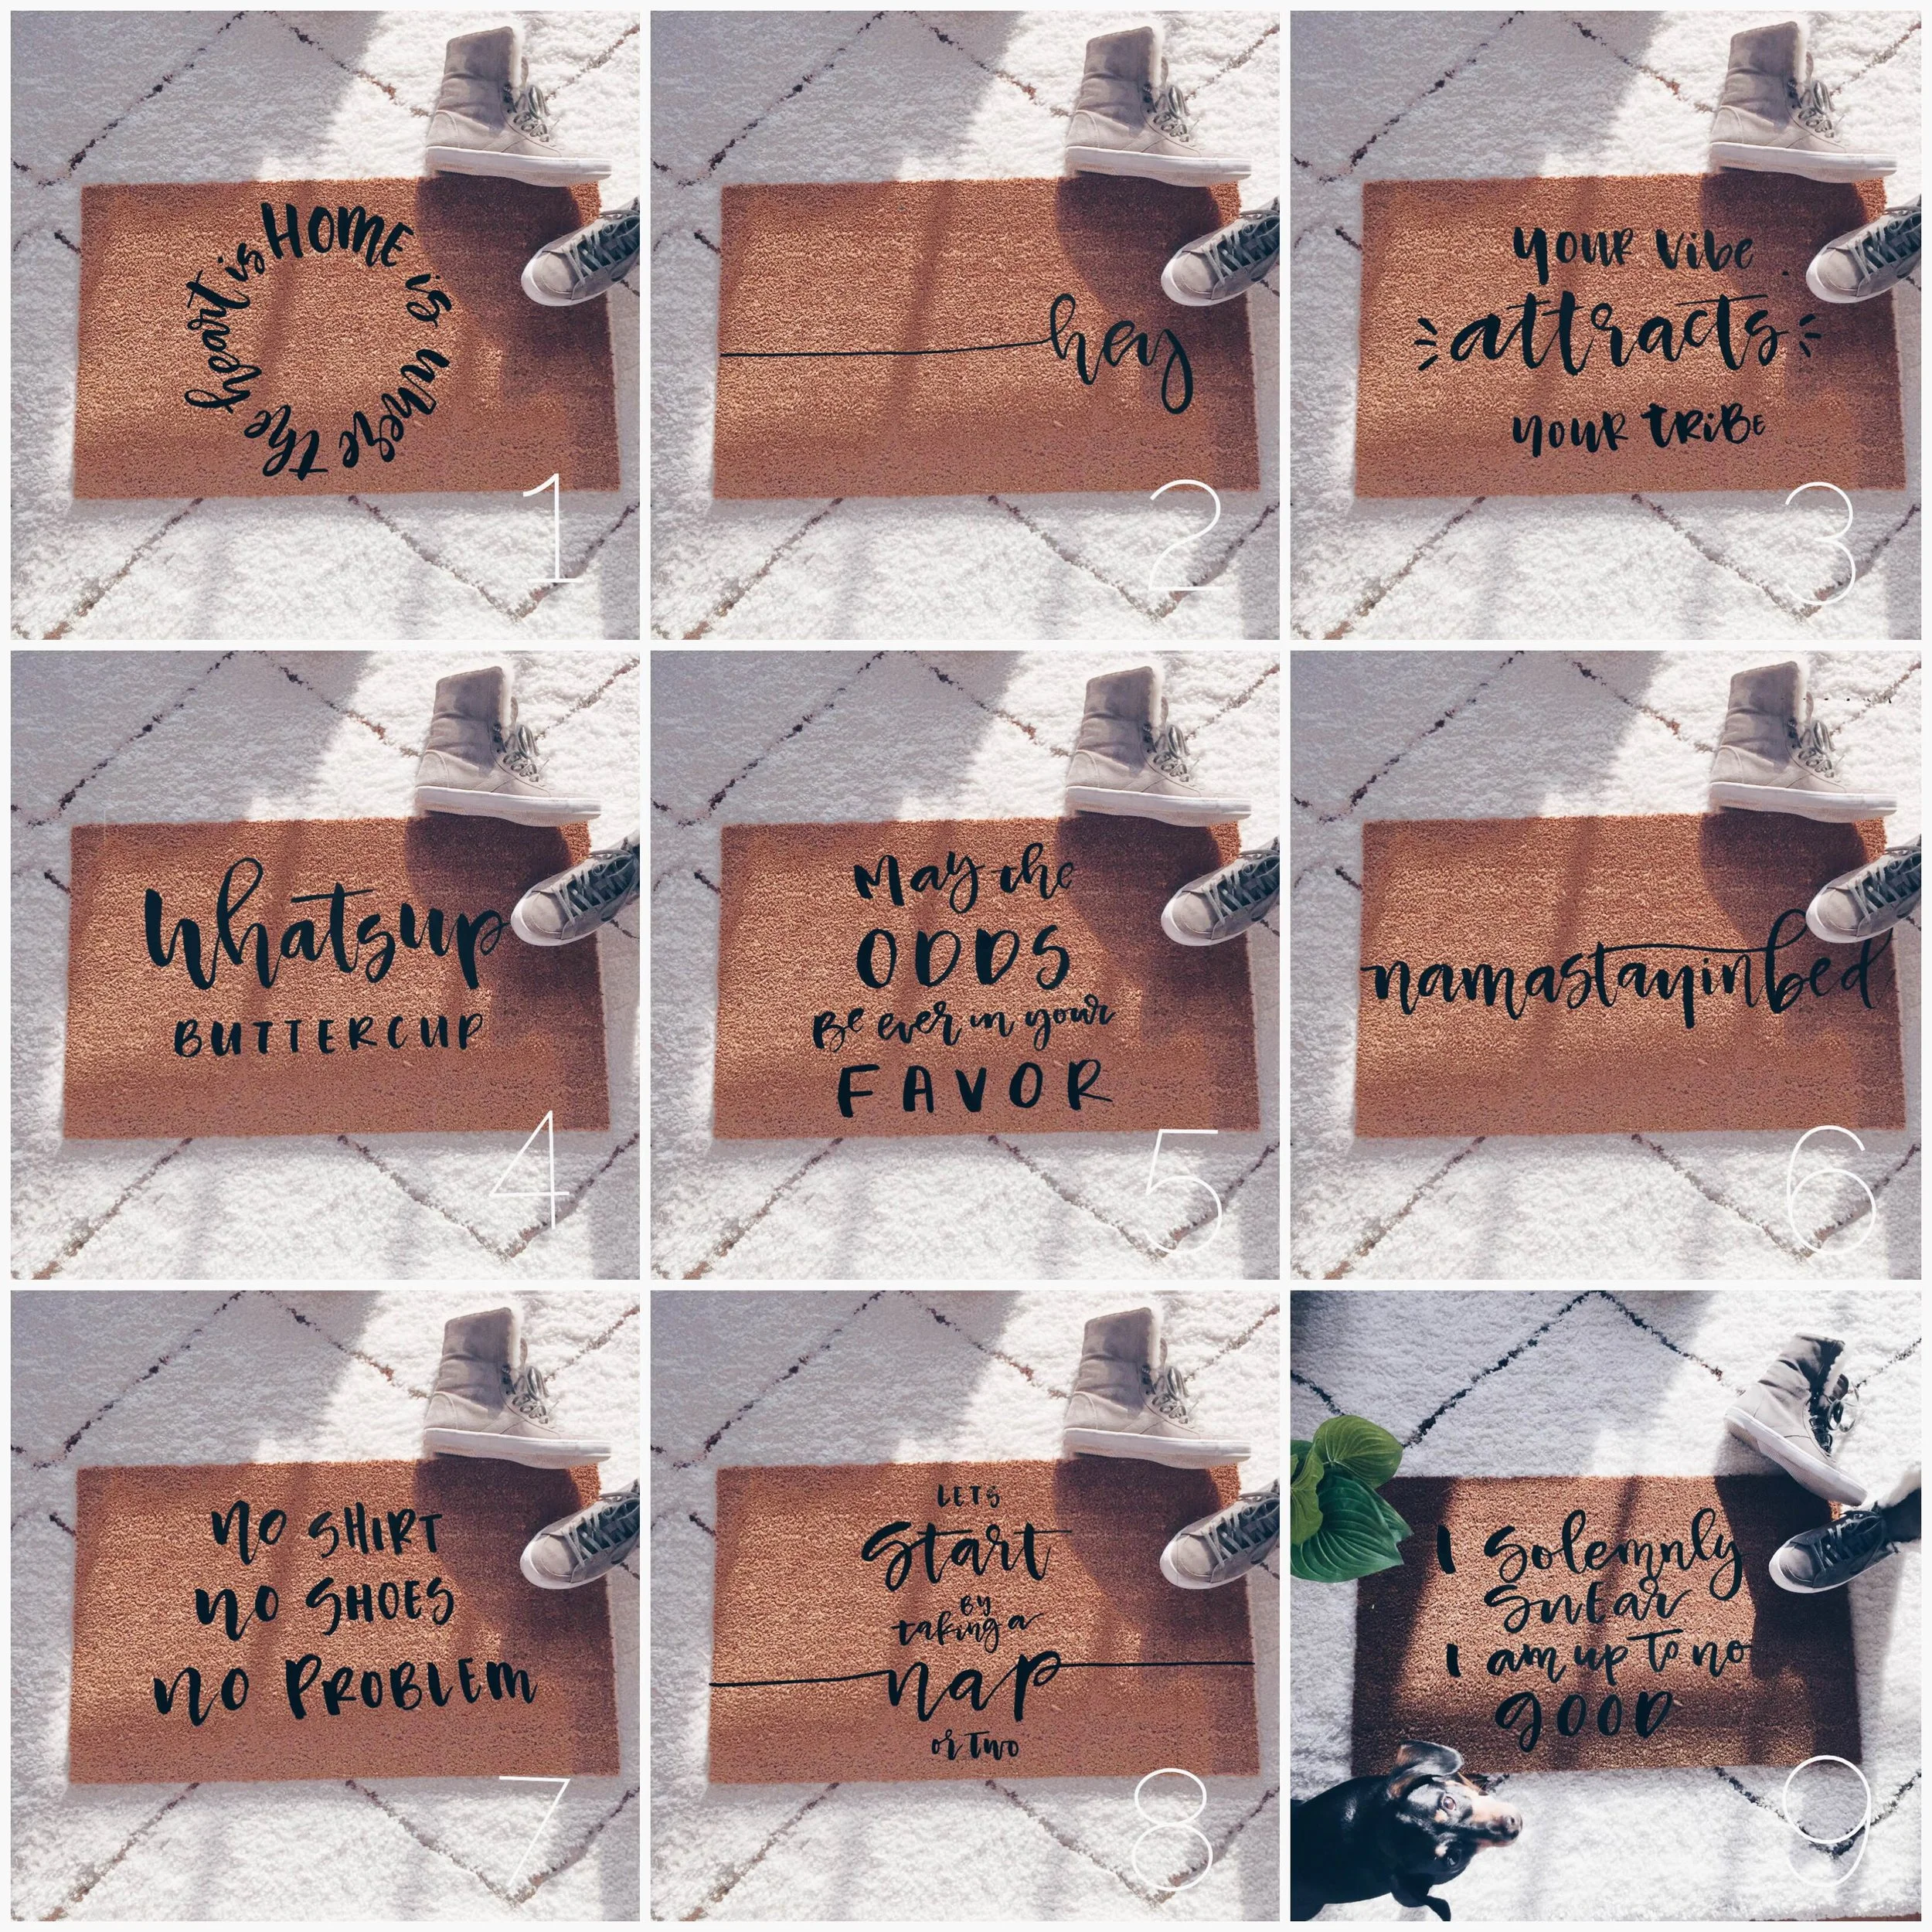 HOME is where the heart is
1
hey
2
your vibe
attracts
your TRiBE
3
Whatsup
BUTTERCUP
4
May the
ODDS
Be ever in your
FAVOR
5
namastayinbed
6
NO SHIRT
NO SHOES
NO PROBLEM
7
LETS
Start
BY
taking a
nap
or Two
8
I Solemnly
SwEar
I am up to no
GOOD
9